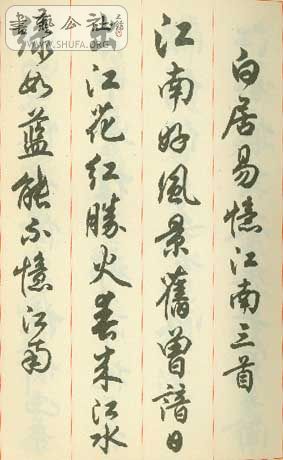 白居易憶江南三首
江南好風景舊曾諳日
出江花紅勝火春來江水
綠如藍能不憶江南
書藝公社
WWW.SHUFA.ORG